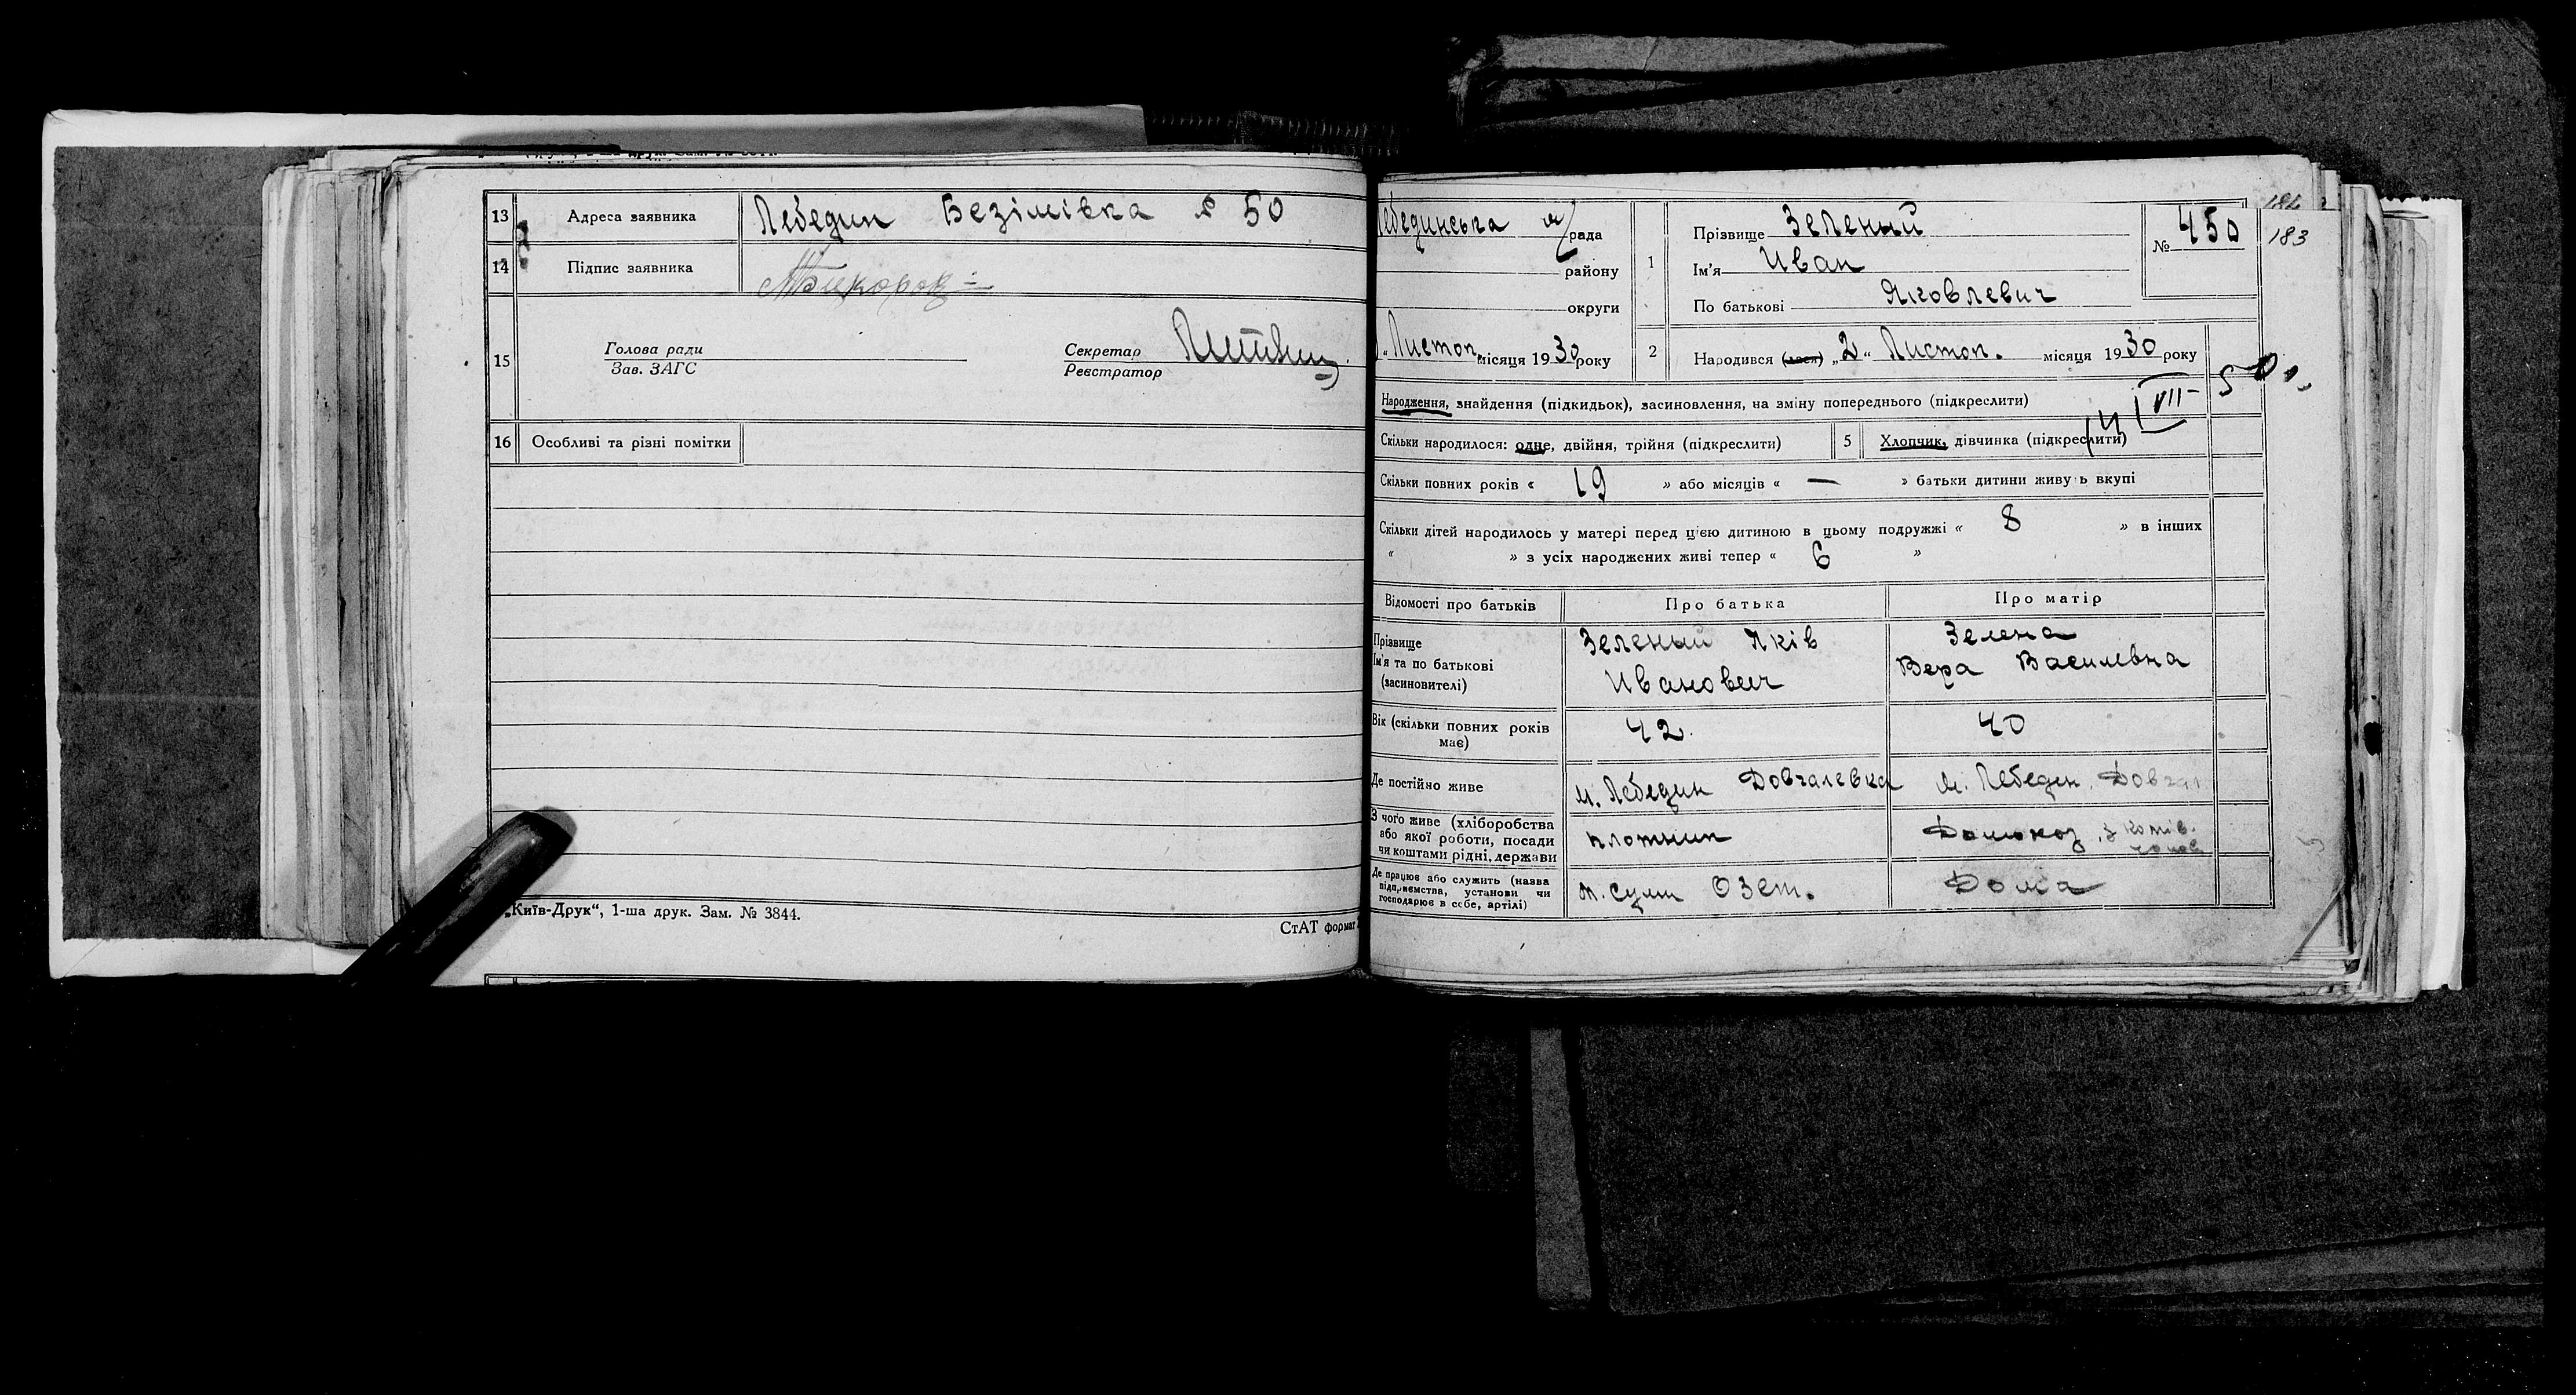 13 Адреса заявника Лебедин Безімівка № 50
14 Підпис заявника
15 Голова ради
Зав. ЗАГС
Секретар
Реєстратор
16 Особливі та різні помітки
„Київ-Друк“, 1-ша друк. Зам. № 3844.
СтАТ формат
183
Лебединська м/рада
району
округи
Листоп. місяця 1930 року
1 Прізвище Зеленый
Ім'я Иван
По батькові Яковлевич
№ 450
2 Народився (лася) „2“ Листоп. місяця 1930 року
Народження, знайдення (підкидьок), засиновлення, на зміну попереднього (підкреслити)
14 VII - 50
Скільки народилося: одне, двійня, трійня (підкреслити)
5 Хлопчик, дівчинка (підкреслити)
Скільки повних років « 19 » або місяців « — » батьки дитини живуть вкупі
Скільки дітей народилось у матері перед цією дитиною в цьому подружжі « 8 » в інших
« » з усіх народжених живі тепер « 6 »
Відомості про батьків Про батька Про матір
Прізвище
Ім'я та по батькові
(засиновителі)
Зеленый Яків
Иванович
Зелена
Вера Василевна
Вік (скільки повних років
має)
42. 40
Де постійно живе м. Лебедин Довгалевка м. Лебедин. Довгал
З чого живе (хліборобства
або якої роботи, посади
чи коштами рідні, держави
плотник
Домохоз.
Де працює або служить (назва
підприємства, установи чи
господарює в себе, артілі)
Озет.
Дома